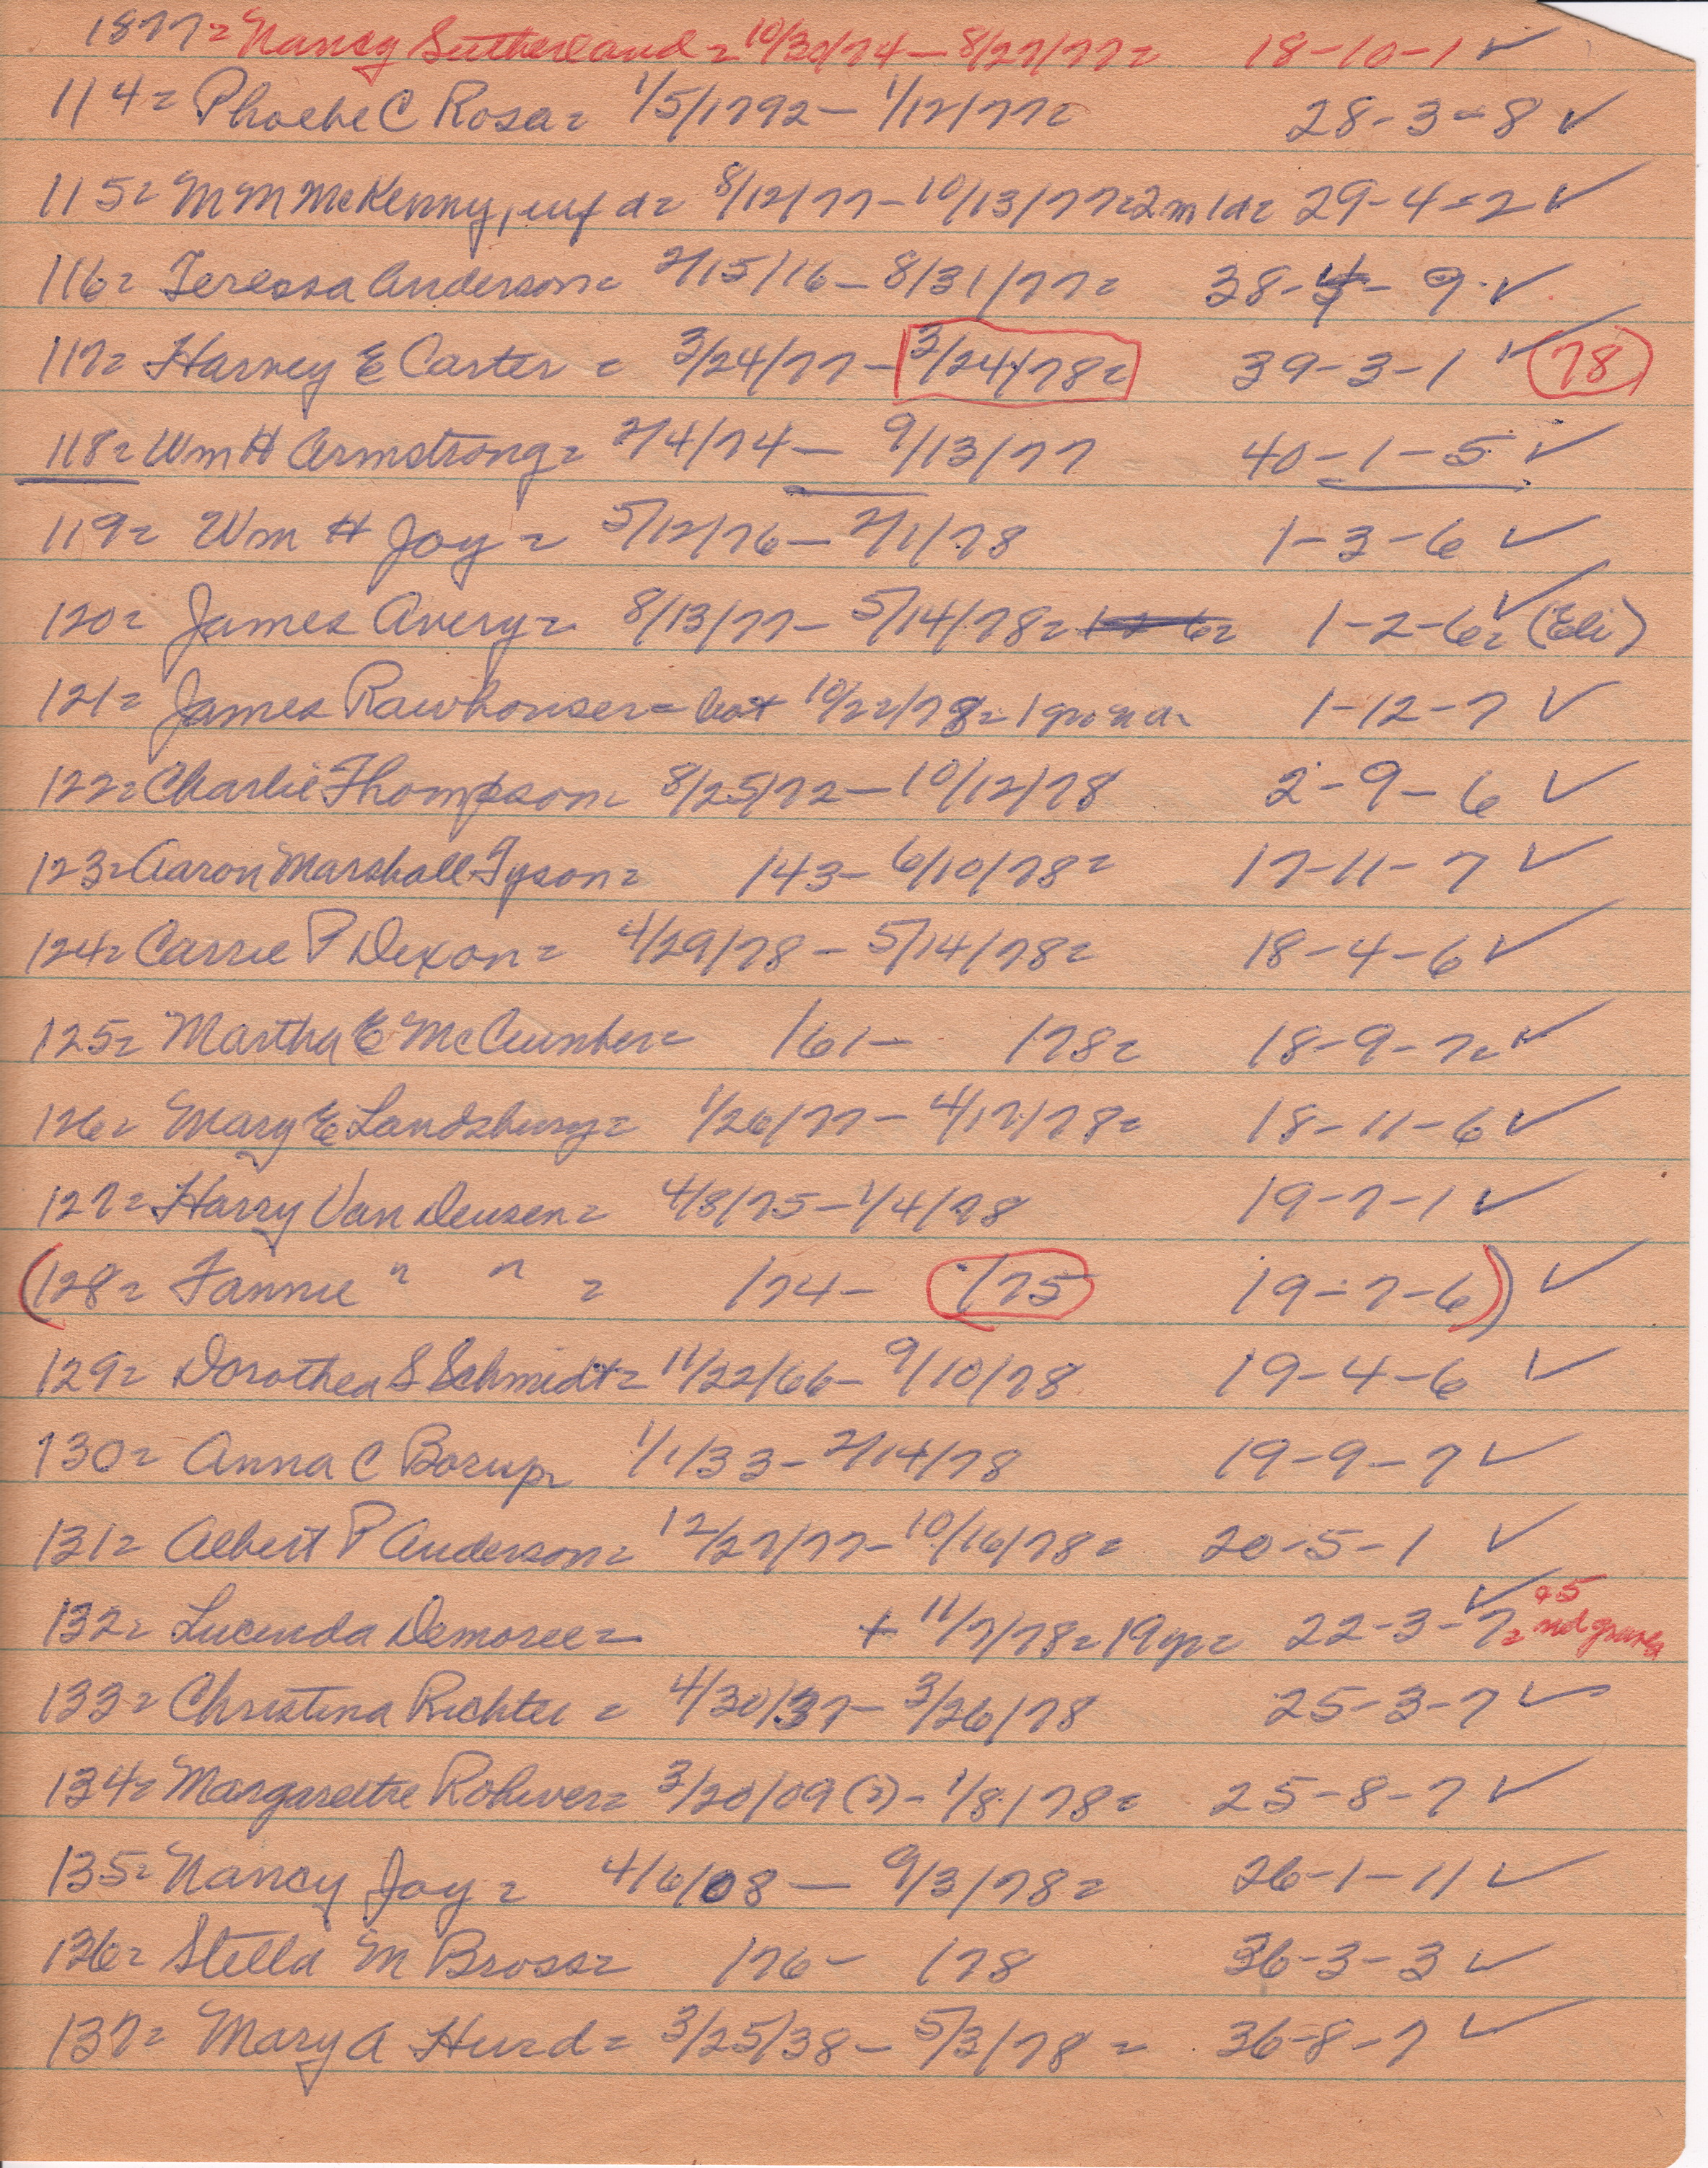 1877= Nancy Sutherland = 10/30/74 - 8/27/77= 18-10-1 ✓
114= Phoebe C Rosa= 1/5/1792 - 1/12/77= 28-3-8 ✓
115= M M McKenny, inf d= 8/12/77 - 10/13/77=2m 1d= 29-4-2 ✓
116= Teressa Anderson= 2/15/16 - 8/31/77= 38-4-9 ✓
117= Harvey E Carter = 3/24/77 - 3/24/78= 39-3-1 ✓ 78
118= Wm H Armstrong= 2/4/74 - 9/13/77 40-1-5 ✓
119= Wm H Joy = 5/12/76 - 2/1/78 1-3-6 ✓
120= James Avery= 8/13/77 - 5/14/78= 1-2-6= ✓ (Eli)
121= James Rawhouser= 10/22/78= 1-12-7 ✓
122= Charlie Thompson= 8/25/72 - 10/12/78 2-9-6 ✓
123= Aaron Marshall Tyson= /43 - 6/10/78= 17-11-7 ✓
124= Carrie P Dixon= 4/29/78 - 5/14/78= 18-4-6 ✓
125= Martha E McCumber= /61 - /78= 18-9-7= ✓
126= Mary E Landsbury= 1/26/77 - 4/17/78= 18-11-6 ✓
127= Harry Van Deusen= 4/8/75 - 1/4/78 19-7-1 ✓
(128= Fannie " " = /74 - /75 19-7-6) ✓
129= Dorothea S Schmidt= 11/22/66 - 9/10/78 19-4-6 ✓
130= Anna C Borup= 1/1/33 - 2/14/78 19-9-7 ✓
131= Albert P Anderson= 12/27/77 - 10/16/78= 20-5-1 ✓
132= Lucinda Demoree= + 11/7/78=19yr= 22-3-7= ✓ +5 md graves
133= Christina Richter = 4/30/37 - 3/26/78 25-3-7 ✓
134= Margarettie Rohwer= 3/20/09 (?) - 1/8/78= 25-8-7 ✓
135= Nancy Joy= 4/6/08 - 9/3/78= 26-1-11 ✓
136= Stella M Bross= /76 - /78 36-3-3 ✓
137= Mary A Hurd= 3/25/38 - 5/3/78 = 36-8-7 ✓